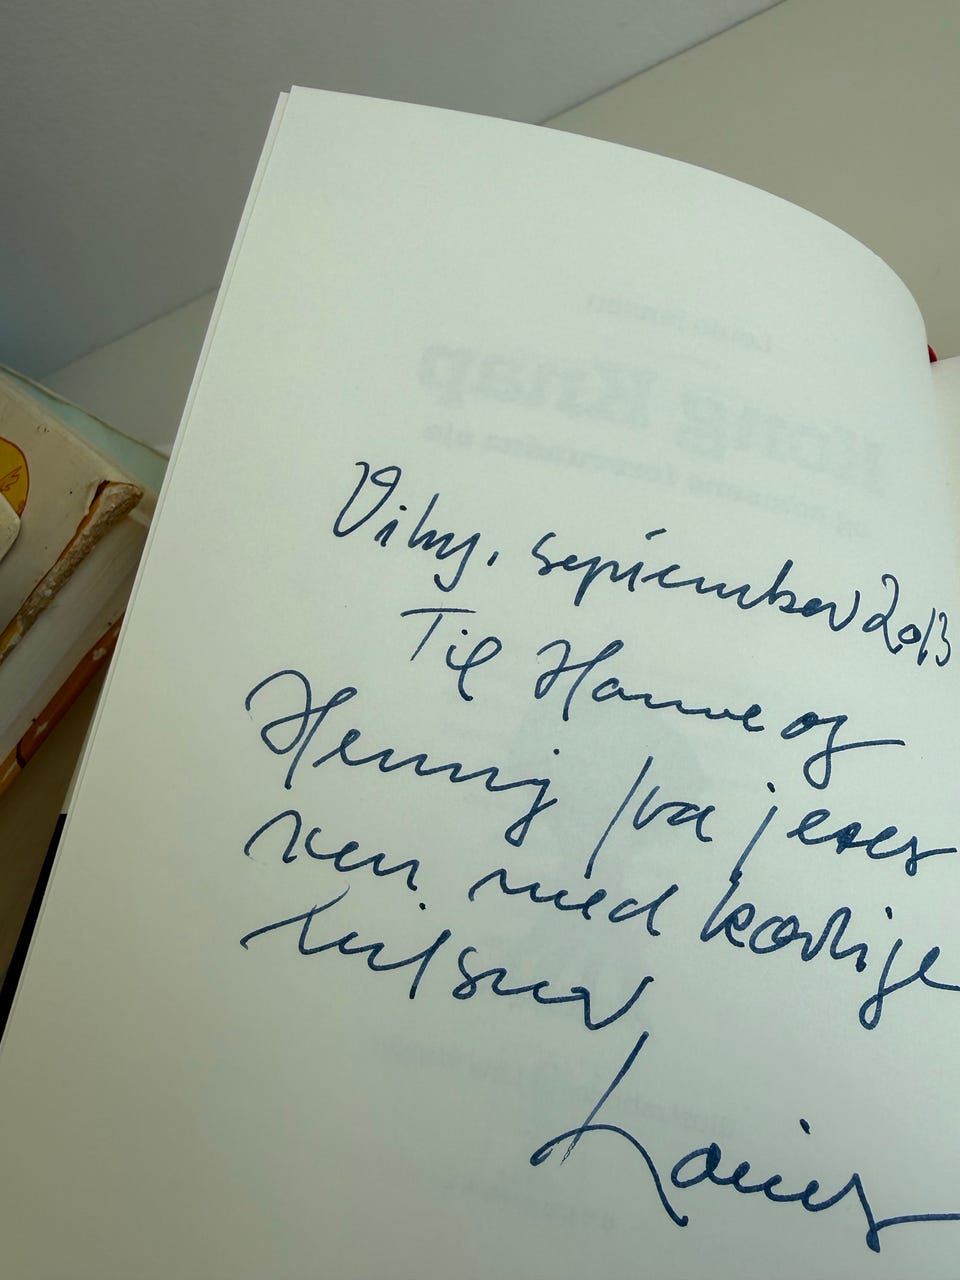 Kong Knap
Viby, september 2013
Til Hanne og
Henning fra jeres
ven med kærlige
hilsner
Louis